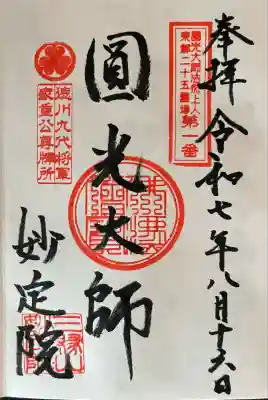 奉拝
令和七年八月十六日
圓光大師法然上人
東都二十五霊場
第一番
圓光大師
徳川九代将軍
家重公尊牌所
妙定院
三縁山